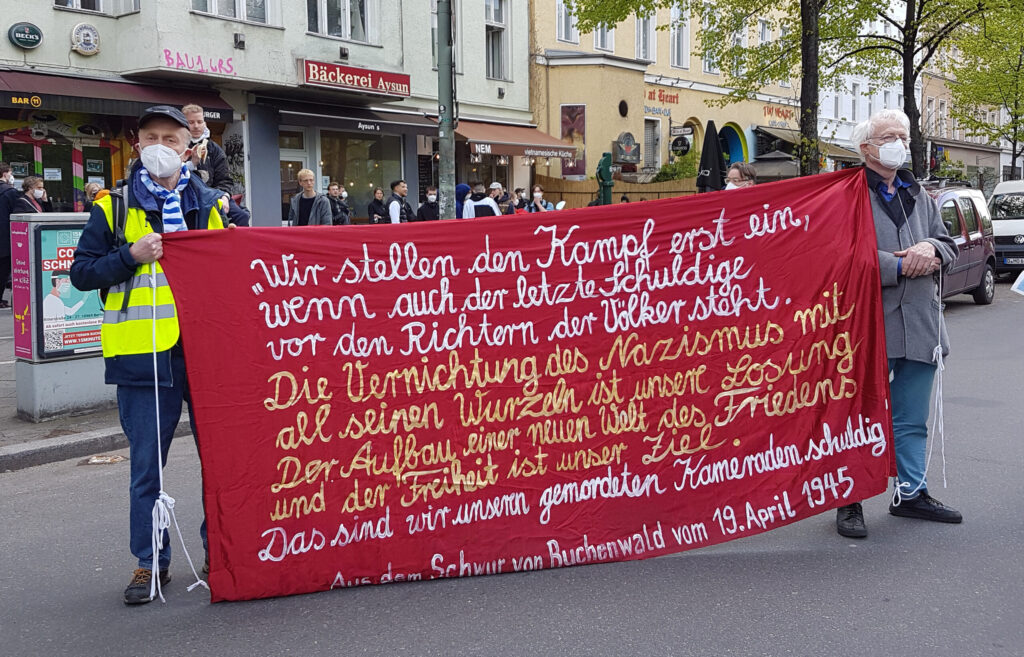 BECK'S
BAU 1 URS
Bäckerei Aysun
BAR 11
BURGER
Aysun's
NEM
vietnamesische Küche
at Heart
„Wir stellen den Kampf erst ein,
wenn auch der letzte Schuldige
vor den Richtern der Völker steht.
Die Vernichtung des Nazismus mit
all seinen Wurzeln ist unsere Losung
Der Aufbau einer neuen Welt des Friedens
und der Freiheit ist unser Ziel.
Das sind wir unsern gemordeten Kameraden schuldig
Aus dem Schwur von Buchenwald vom 19. April 1945